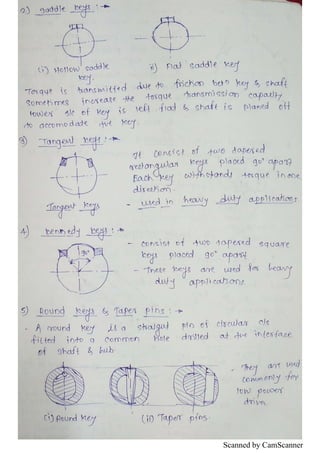 2) Saddle keys :→
(i) Hollow saddle key.
ii) Flat saddle key
Torque is transmitted due to friction betn key & shaft
sometimes increase the torque transmission capacity
lower side of key is left flat & shaft is planed off
to accomodate the key.
3) Tangent keys :→
It consist of two tapered
rectangular keys placed 90° apart
Each key withstands torque in one
direction.
- used in heavy duty applications
Tangent keys
4) kennedy keys :→
90°
- consist of two tapered square
keys placed 90° apart
- These keys are used for heavy
duty applications
5) Round keys & Taper pins :→
- A round key is a straight pin of circular c/s
fitted into a common hole drilled at the interface
of shaft & hub.
- They are used
commonly for
low power
drive.
(i) Round key
(ii) Taper pins.
Scanned by CamScanner